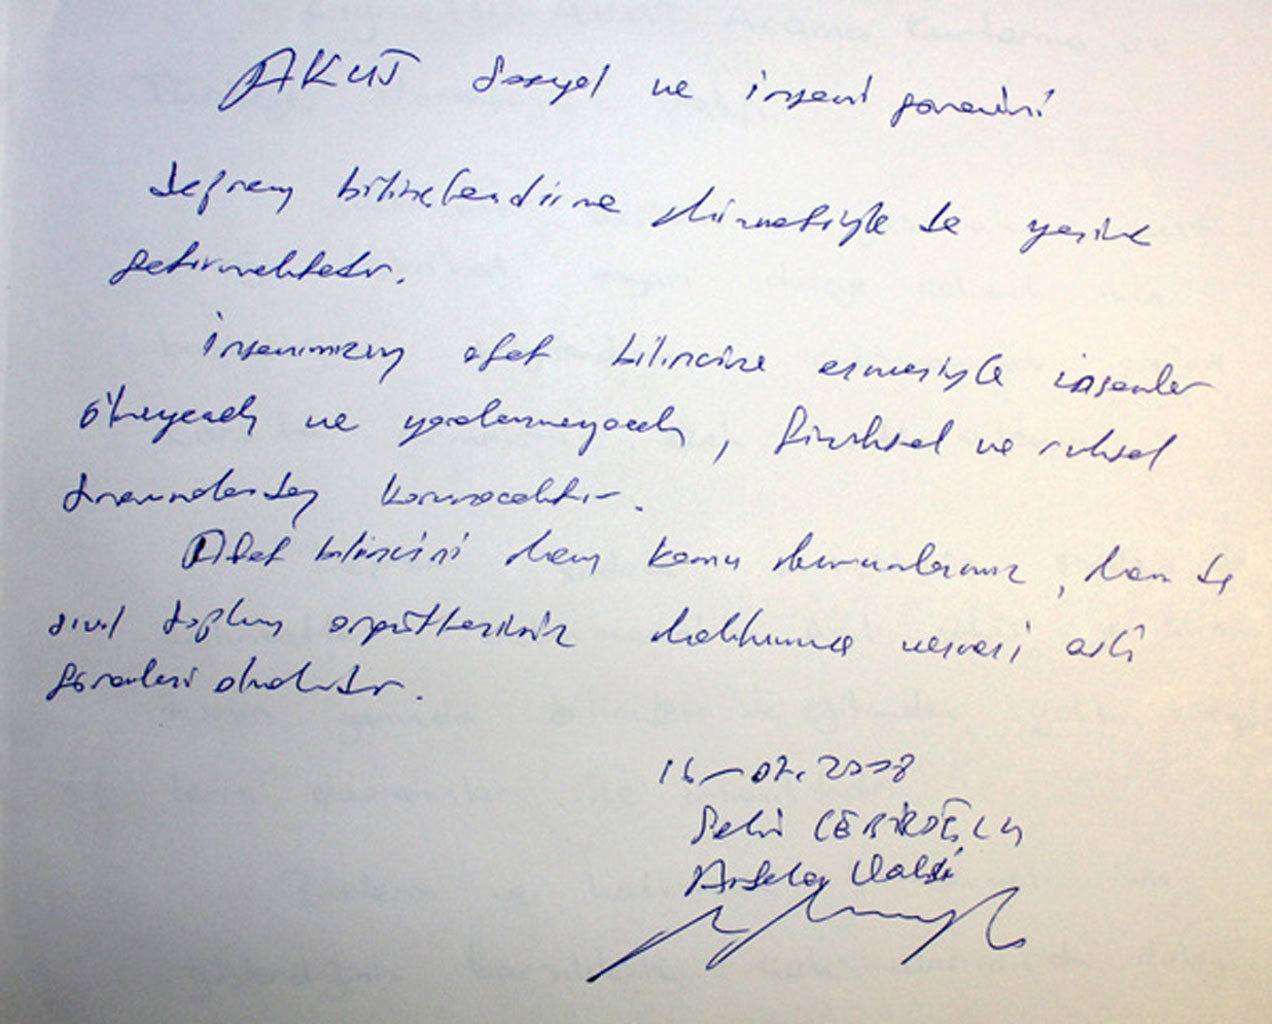 AKUT sosyal ve insani görevini
deprem bilinçlendirme hizmetiyle de yerine
getirmektedir.
İnsanımızın afet bilincine ermesiyle insanlar
ölmeyecek ve yaralanmayacak, fiziksel ve ruhsal
travmalardan korunacaktır.
Afet bilincini hem kamu kurumlarımız, hem de
sivil toplum örgütlerinin halkımıza vermesi asli
görevleri olmalıdır.
16-07.2008
Antalya Valisi